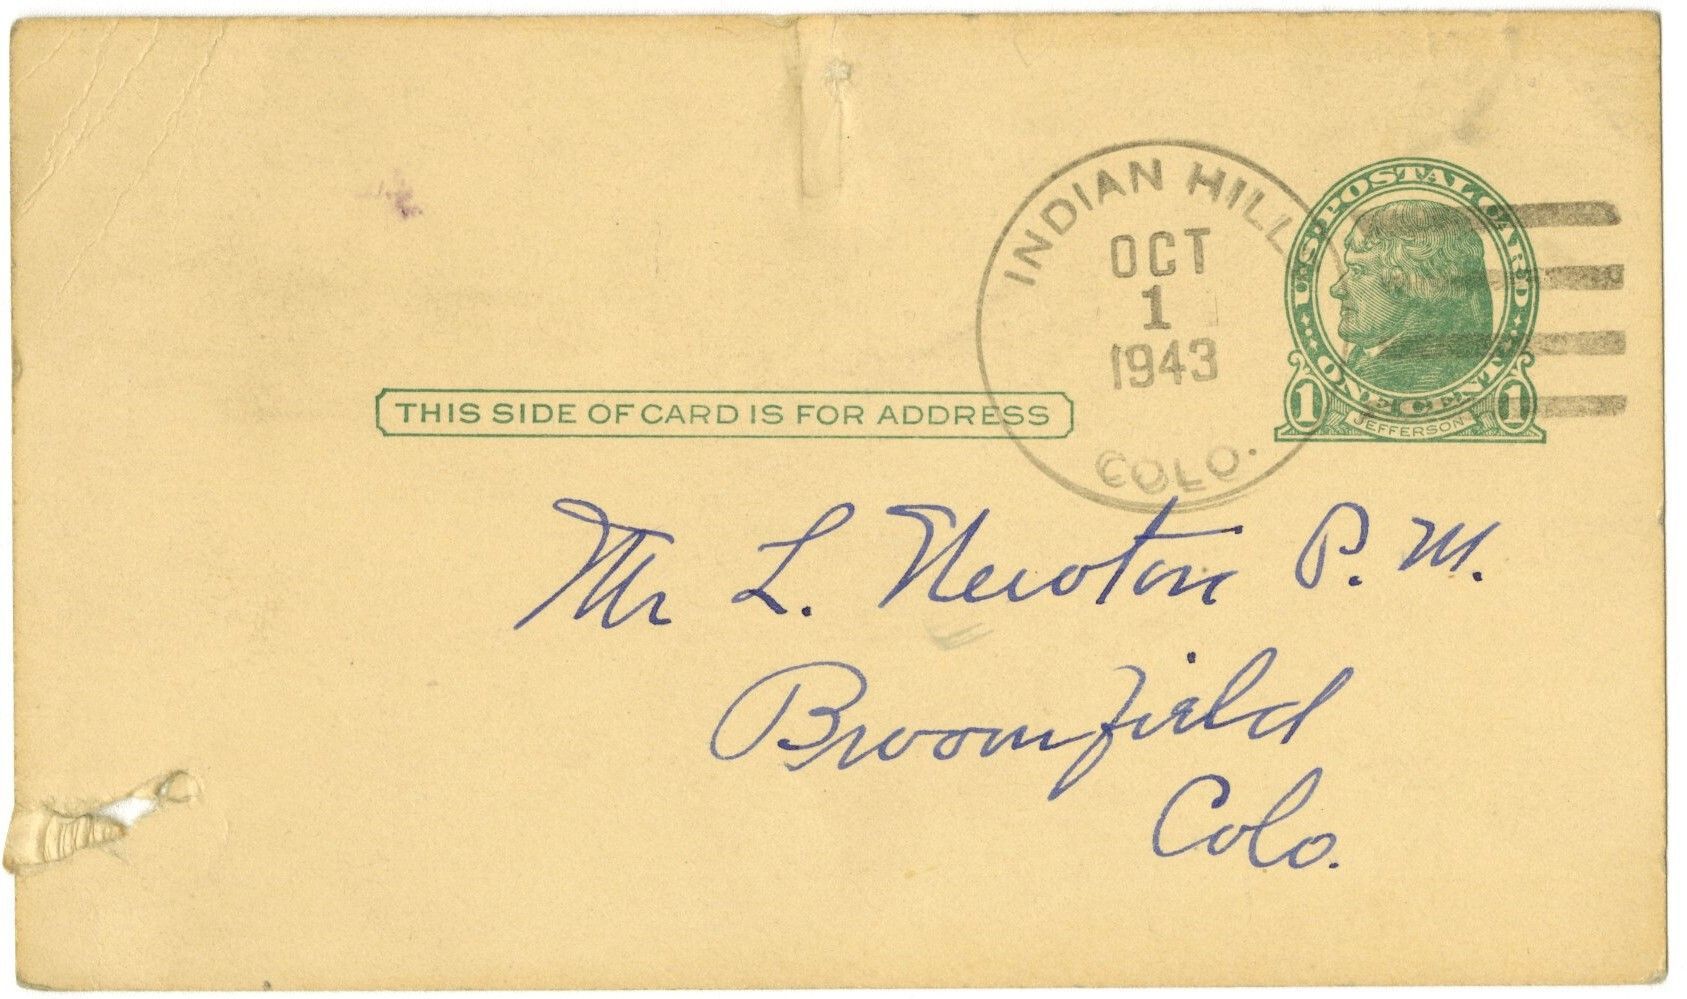 INDIAN HILL
OCT
1
1943
COLO.
U.S. POSTAL CARD
ONE CENT
1 JEFFERSON 1
THIS SIDE OF CARD IS FOR ADDRESS
Mr L. Newton P.M.
Broomfield
Colo.